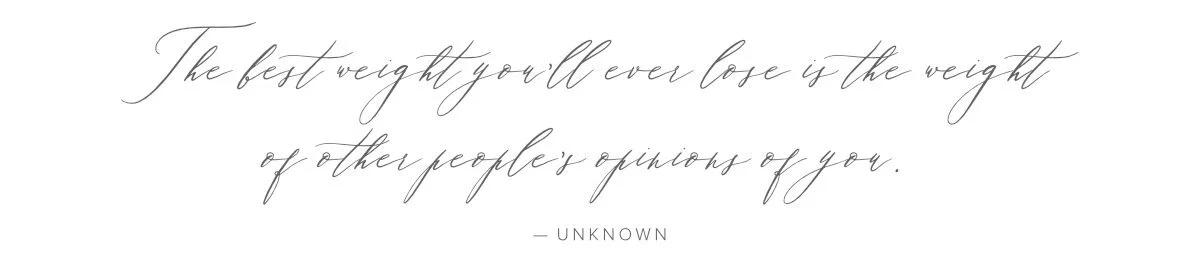 The best weight you'll ever lose is the weight
of other people's opinions of you.
— UNKNOWN